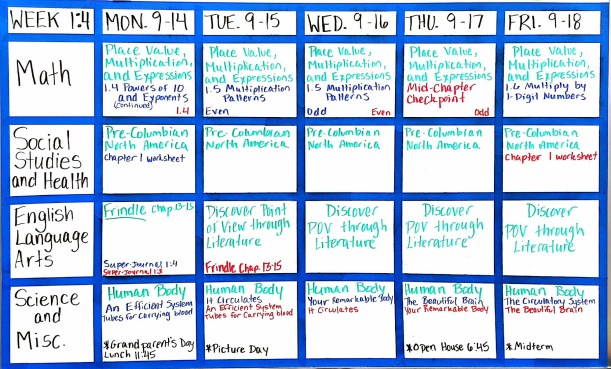 WEEK 1:4
MON. 9-14
TUE. 9-15
WED. 9-16
THU. 9-17
FRI. 9-18
Math
Place Value,
Multiplication,
and Expressions
1.4 Powers of 10
and Exponents
(continued)
1.4
Place Value,
Multiplication,
and Expressions
1.5 Multiplication
Patterns
Even
Place Value,
Multiplication,
and Expressions
1.5 Multiplication
Patterns
Odd Even
Place Value,
Multiplication,
and Expressions
Mid-Chapter
Checkpoint
Odd
Place Value,
Multiplication,
and Expressions
1.6 Multiply by
1-Digit Numbers
Social
Studies
and Health
Pre-Columbian
North America
Chapter 1 worksheet
Pre-Columbian
North America
Pre-Columbian
North America
Pre-Columbian
North America
Pre-Columbian
North America
Chapter 1 worksheet
English
Language
Arts
Frindle Chap 13-15
Super-Journal 1:4
Super-Journal 1:3
Discover Point
of View through
Literature
Frindle Chap. 13-15
Discover
POV through
Literature
Discover
POV through
Literature
Discover
POV through
Literature
Science
and
Misc.
Human Body
An Efficient System
Tubes for Carrying blood
*Grandparent's Day
Lunch 11:45
Human Body
It Circulates
An Efficient System
Tubes for Carrying blood
*Picture Day
Human Body
Your Remarkable Body
It Circulates
Human Body
The Beautiful Brain
Your Remarkable Body
*Open House 6:45
Human Body
The Circulatory System
The Beautiful Brain
*Midterm